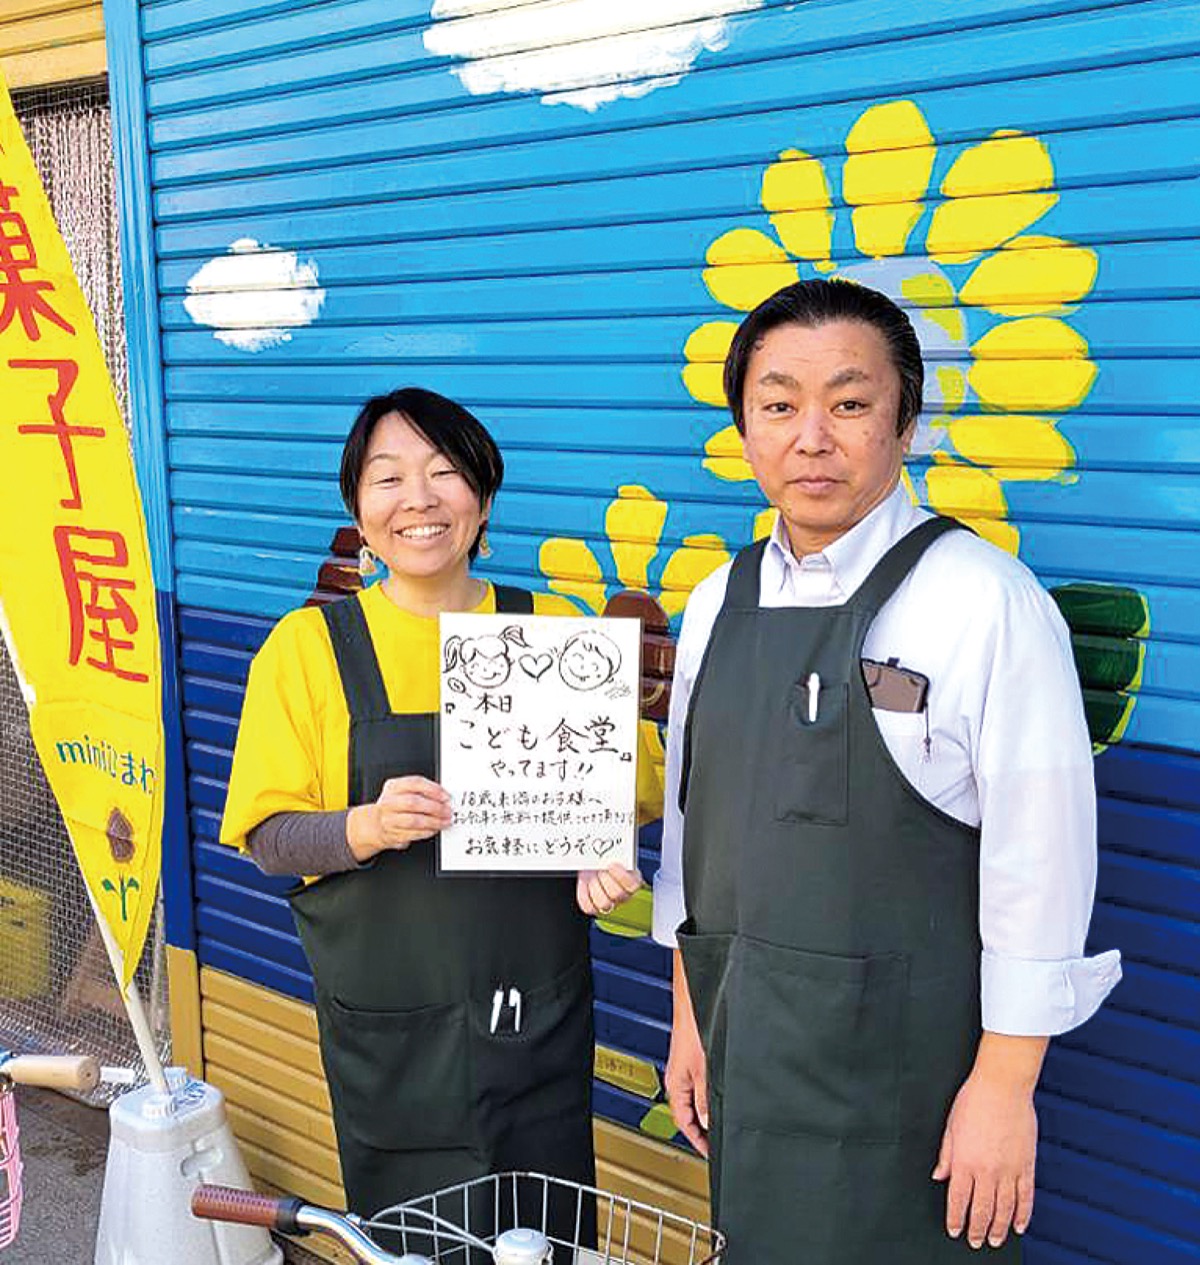 菓子屋
miniひまわ
『本日
こども食堂』
やってます!!
18歳未満のお子様へ
お弁当を無料で提供させて頂きます
お気軽にどうぞ♡